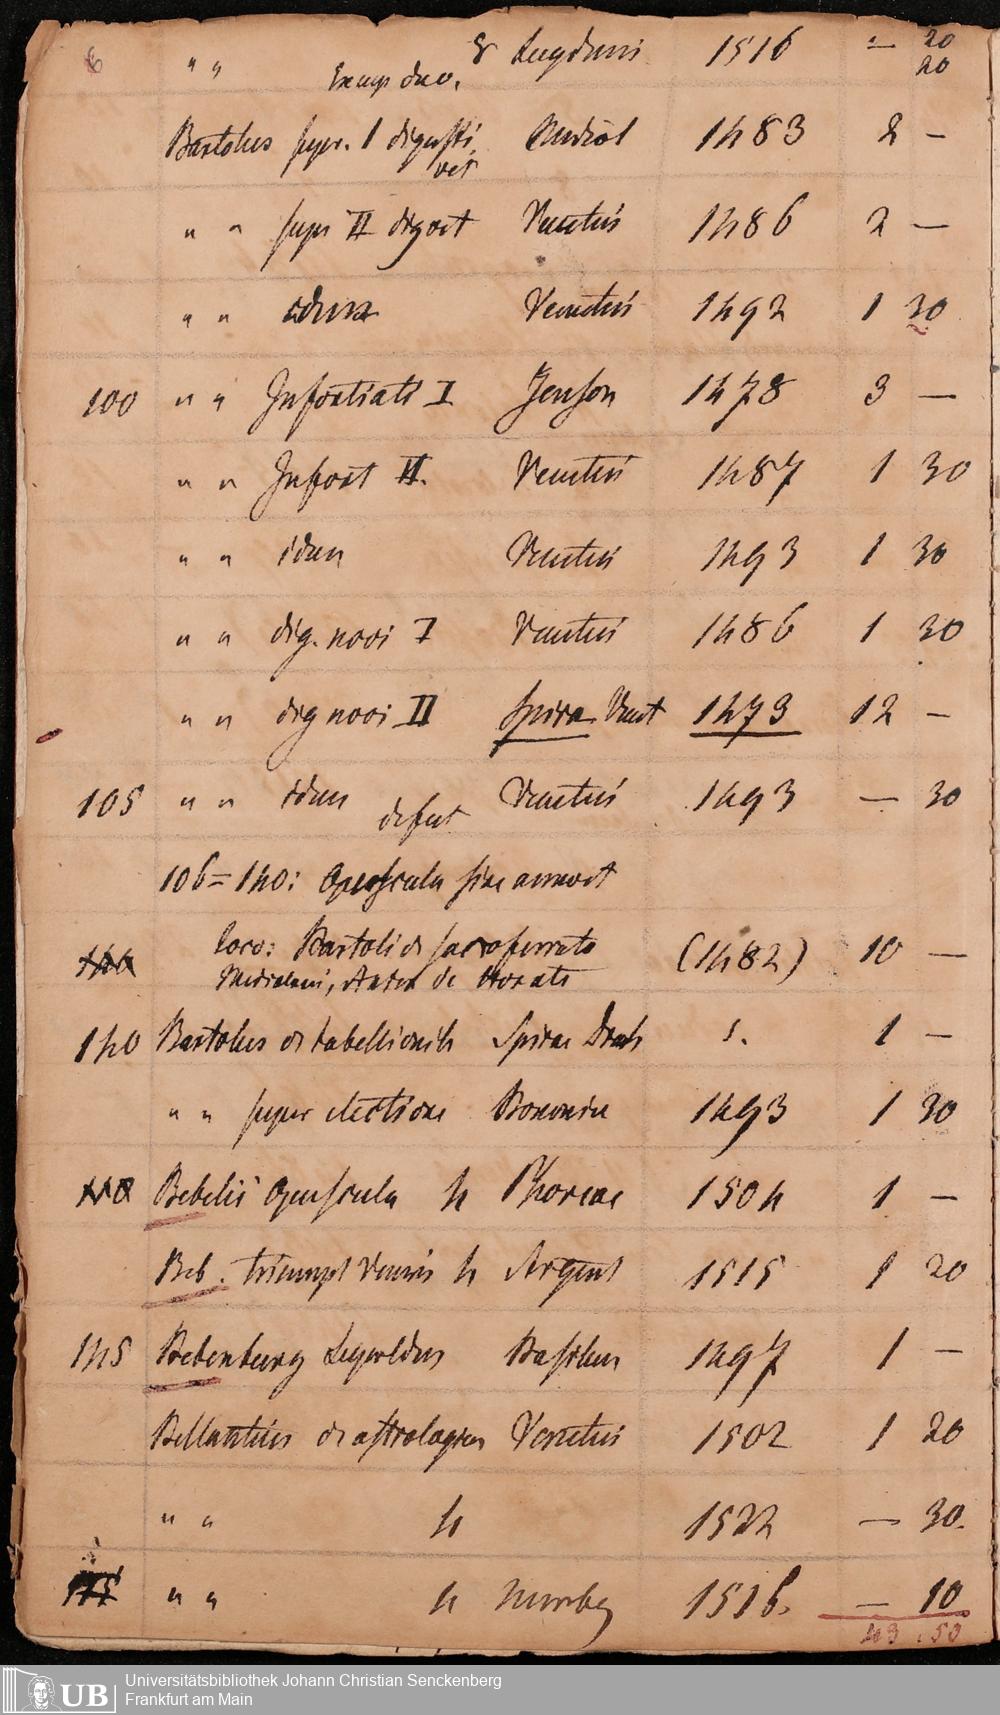 6 " " 8 Lugduni 1516 — 20
Exemp duo. 20
Bartolus super. I digesti Mediol 1483 2 —
vet
" " super II dig vet Venetiis 1486 2 —
" " idem Venetiis 1492 1 30
100 " " Infortiati I Jenson 1478 3 —
" " Infort II. Venetiis 1487 1 30
" " idem Venetiis 1493 1 30
" " dig. novi I Venetiis 1486 1 30
" " dig novi II Spira Venet 1473 12 —
105 " " idem Venetiis 1493 — 30
defect
106=140: Opuscula sine anno et
loco: Bartoli de saxoferrato (1482) 10 —
Mediolani, Anton de
140 Bartolus de tabellionib Spirae Drach s. 1 —
" " super electione Bononiae 1493 1 30
Bebelii Opuscula 4 Phorcae 1504 1 —
Beb. triumph Veneris 4 Argent 1515 1 20
145 Bebenburg Lupoldus Basileae 1497 1 —
Bellantius de astrologica Venetiis 1502 1 20
" " 4 1522 — 30.
" " 4 Nurnbg 1516. — 10
43 .50
UB Universitätsbibliothek Johann Christian Senckenberg
Frankfurt am Main